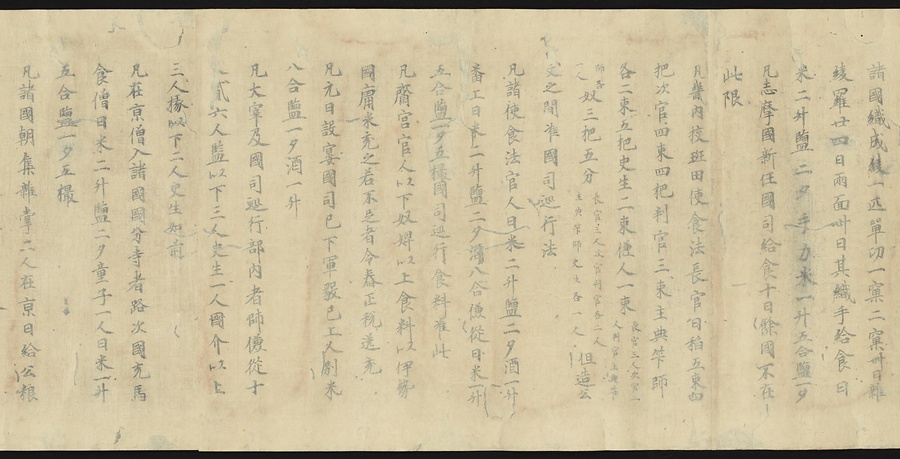 諸國織成綾一疋單功一窠二窠卅日雜
綾羅廿四日兩面卅日其織手給食日
米二升鹽二夕手力米一升五合鹽一夕
凡志摩國新任國司給食十日餘國不在
此限
凡畿內挍班田使食法長官日稻五束四
把次官四束四把判官三束主典笇師
各二束五把史生二束傔人一束
奴三把五分 但造公
文之間准國司巡行法
凡諸使食法官人日米二升鹽二夕酒一升
番上日米二升鹽二夕酒八合傔從日米一升
五合鹽一夕五撮國司巡行食料准此
凡齋宮官人以下奴婢以上食料以伊勢
國庸米充之若不足者令舂正稅送充
凡元日設宴國司已下軍毅已上人別米
八合鹽一夕酒一升
凡大宰及國司巡行部內者帥傔從十
貳六人監以下三人史生一人國介以上
三人掾以下二人史生如前
凡在京僧入諸國國分寺者路次國充馬
食僧日米二升鹽二夕童子一人日米一升
五合鹽一夕五撮
凡諸國朝集雜掌二人在京日給公粮